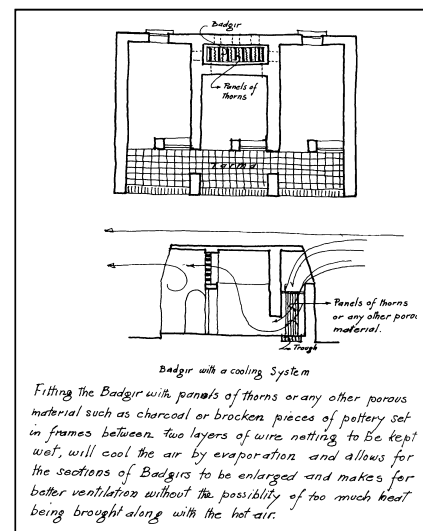 Badgir
Panels of
Thorns
Tarma
Panels of thorns
or any other porou
material.
Trough
Badgir with a cooling System
Fitting the Badgir with panels of thorns or any other porous
material such as charcoal or brocken pieces of pottery set
in frames between two layers of wire netting to be kept
wet, will cool the air by evaporation and allows for
the sections of Badgirs to be enlarged and makes for
better ventilation without the possiblity of too much heat
being brought along with the hot air.